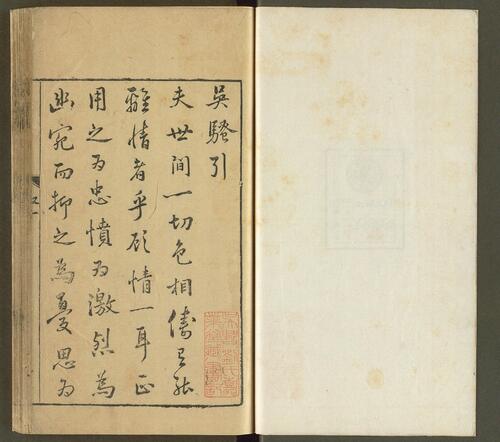 吳騷引
夫世間一切色相儔有能
離情者乎顧情一耳正
用之為忠憤為激烈為
幽宛而抑之為憂思為